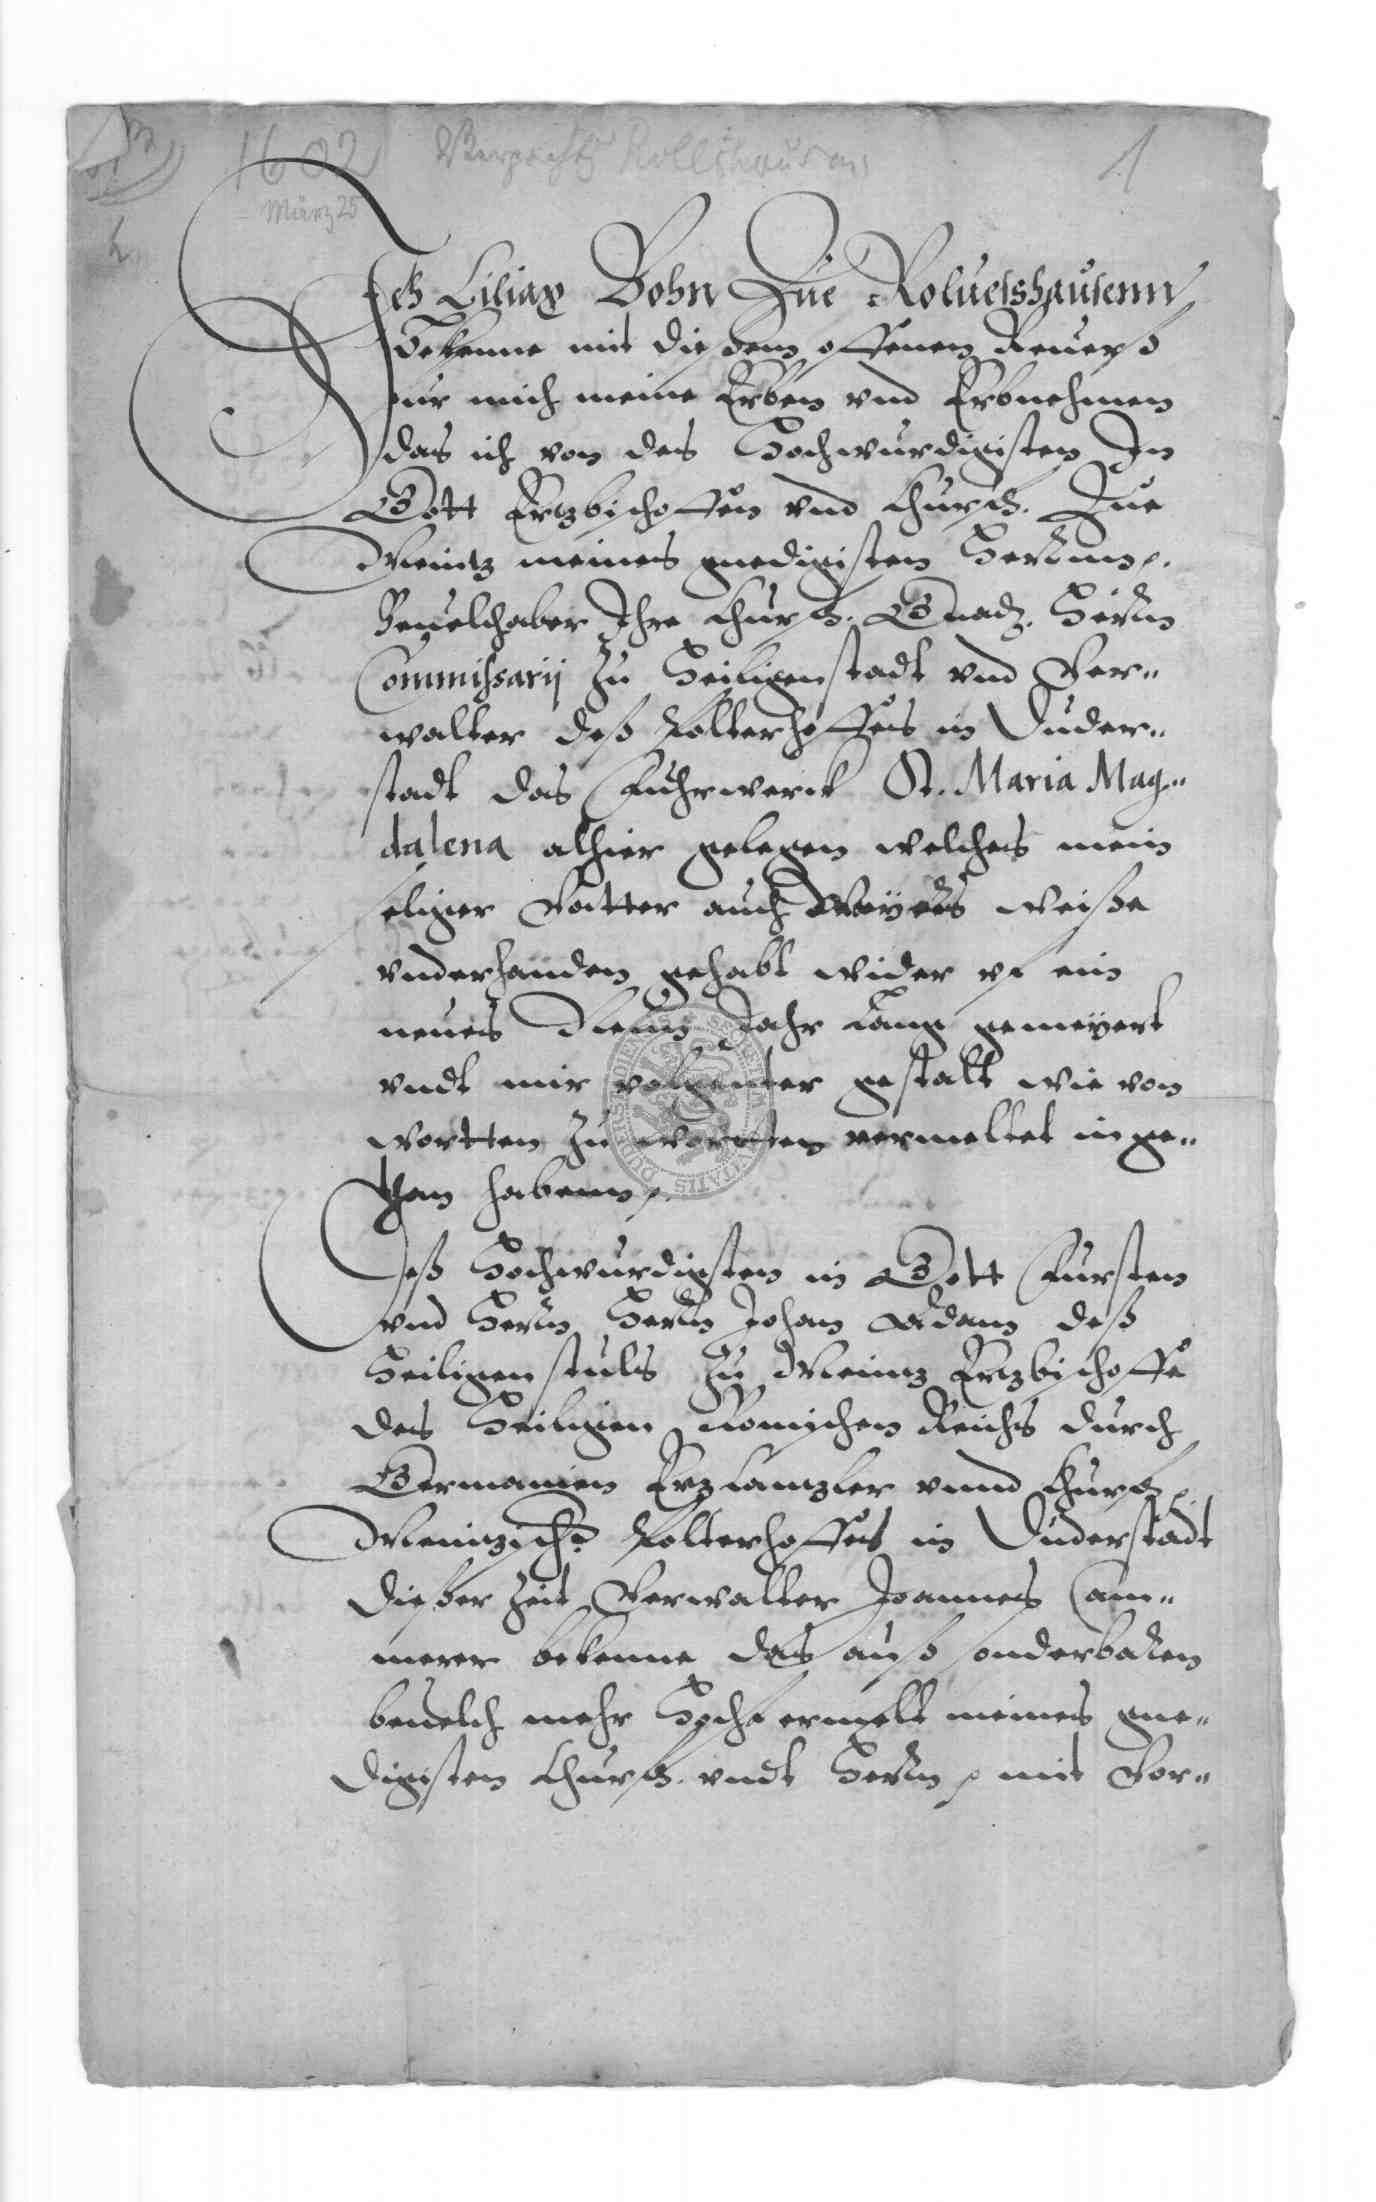 1602 Rollshausen 1
März 25
Ich Ciliax Bohn Zue Roluelshausenn
Bekenne mit diesem offenen Reuerß
vur mich meine Erben vnd Erbnehmen
das ich von des Hochwurdigisten In
Gott Ertzbischoffen vnd Churf. Zue
Meintz meines gnedigisten Herrn p.
Beuelchaber Ihre Churf. Gnad. Herrn
Commissarij zu Heiligenstadt vnd Ver„
walter deß Kolterhoffes in Duder„
stadt das Fuhrwerck St. Maria Mag„
dalena alhier gelegen welches mein
seliger Vatter auch Meyers weiße
vnderhanden gehabt wider vf ein
neues Neun Jahr lang gemeyert
vndt mir volgenter gestalt wie von
wortten zu wortten vermeltet inge„
than habenn p.
Deß Hochwurdigsten in Gott Fursten
vnd Herrn Herrn Johan Adam deß
Heiligen stuls zu Meintz Ertzbischoffe
des Heiligen Romischen Reichs durch
Germanien Ertz Cantzler vnnd Churf.
Meintzisch. Kolterhoffes in Duderstadt
dießer Zeit Verwalter Joannes Cam„
merer bekenne das auß sonderbaren
beuelch mehr Hochermelt meines gne„
digsten Churf. vndt Herrn p mit Vor„